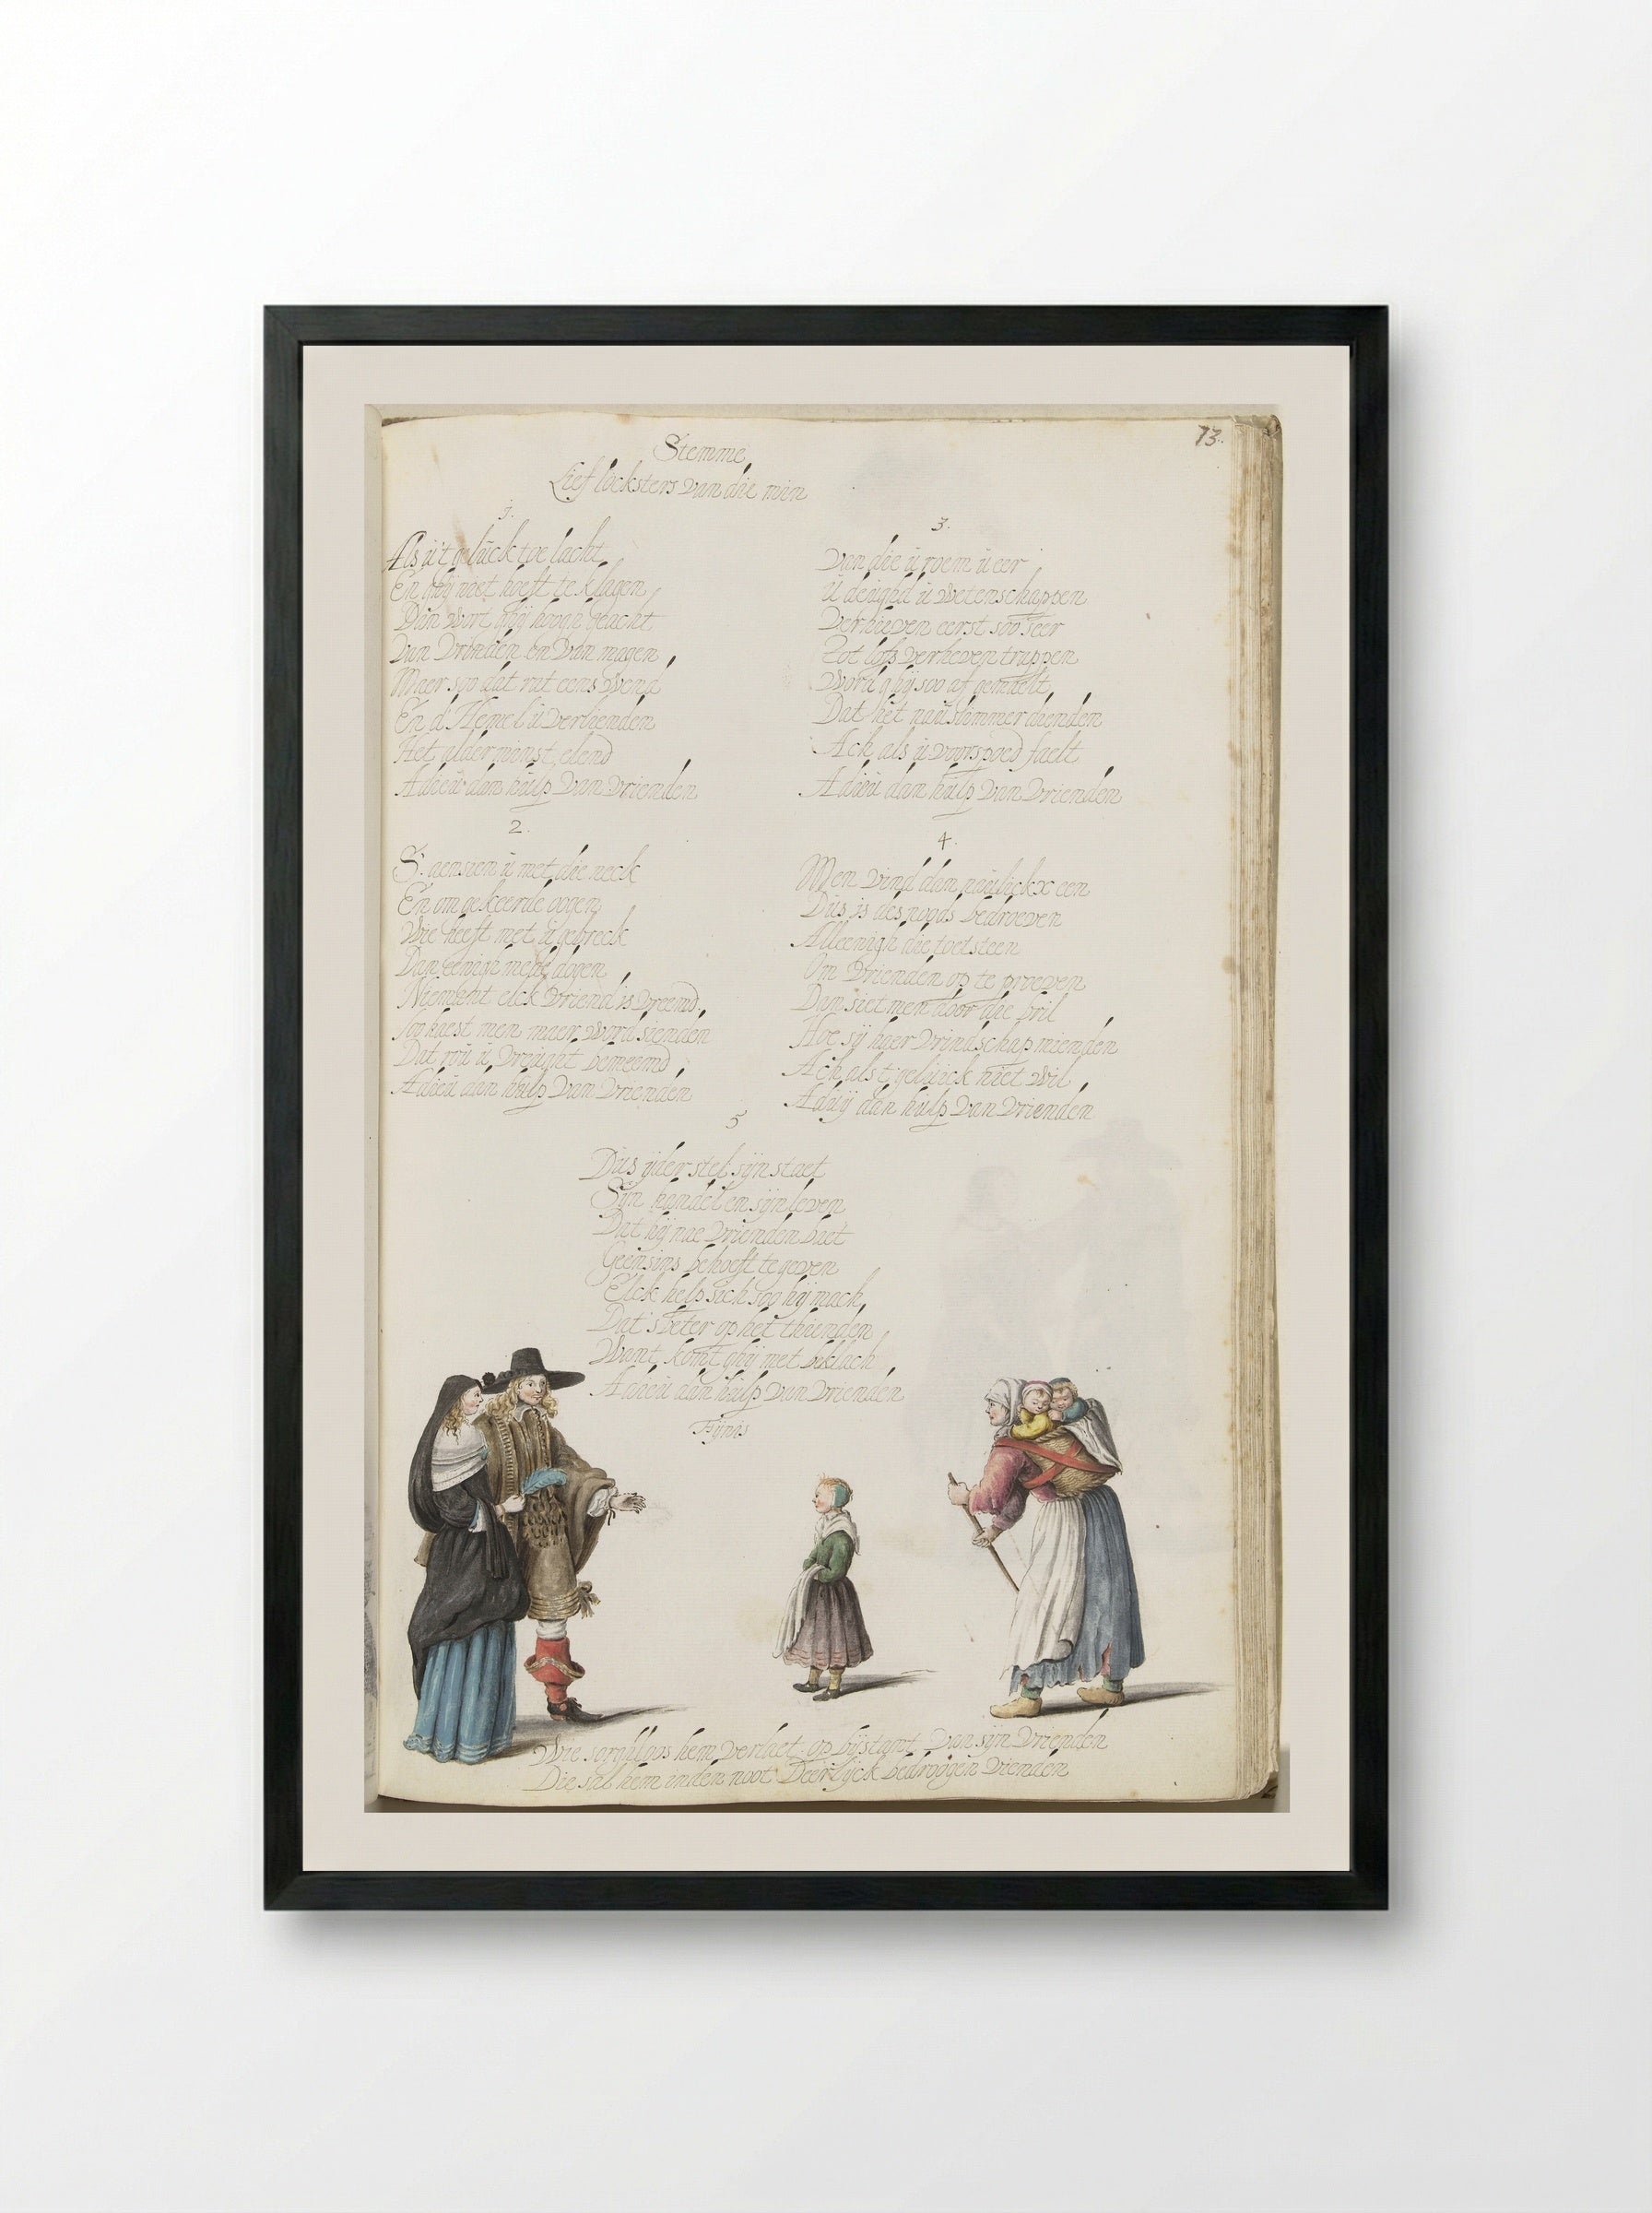 73.
Stemme
Lief locksters van die min
1.
Als u t geluck toe lacht
En ghij niet hoeft te klagen
Dan wort ghij hoogh geacht
Van vrinden en van magen
Maer soo dat rat eens wend
En d'Hemel u verlienden
Het alderminst elend
Adieu dan hulp van vrienden
2.
S. aensien u met die neck
En om gekeerde oogen
Wie heeft met u gebreck
Dan eenigh mede dogen
Niemant elck vriend is vreemd
soo haest men maer word sienden
Dat rou u vreught
Adieu dan hulp van vrienden
3.
Van die u roem u eer
U deughd u wetenschappen
Verhieven eerst soo seer
Tot lofs verheven trappen
Word ghij soo af gemaelt
Dat het nau slimmer dienden
Ach als u voorspoed faelt
Adieu dan hulp van vrienden
4.
Men vind dan naulickx een
Dus is des noods bedroeven
Alleenigh die toetsteen
Om vrienden op te proeven
Dan siet men door die bril
Hoe sij haer vrindschap mienden
Ach als t geluick niet wil
Aduij dan hulp van vrienden
5
Dus ijder stel sijn staet
Sijn handel en sijn leven
Dat hij nae vrienden baet
Geensins behoeft te geven
Elck help sich soo hij mach
Dat's beter op het thienden
Want komt ghij met beklach
Adieu dan hulp van vrienden
Fijnis
Wie sorghloos hem verlaet op bijstant van sijn vrienden
Die sal hem inden noot Deerlijck bedroogen vienden